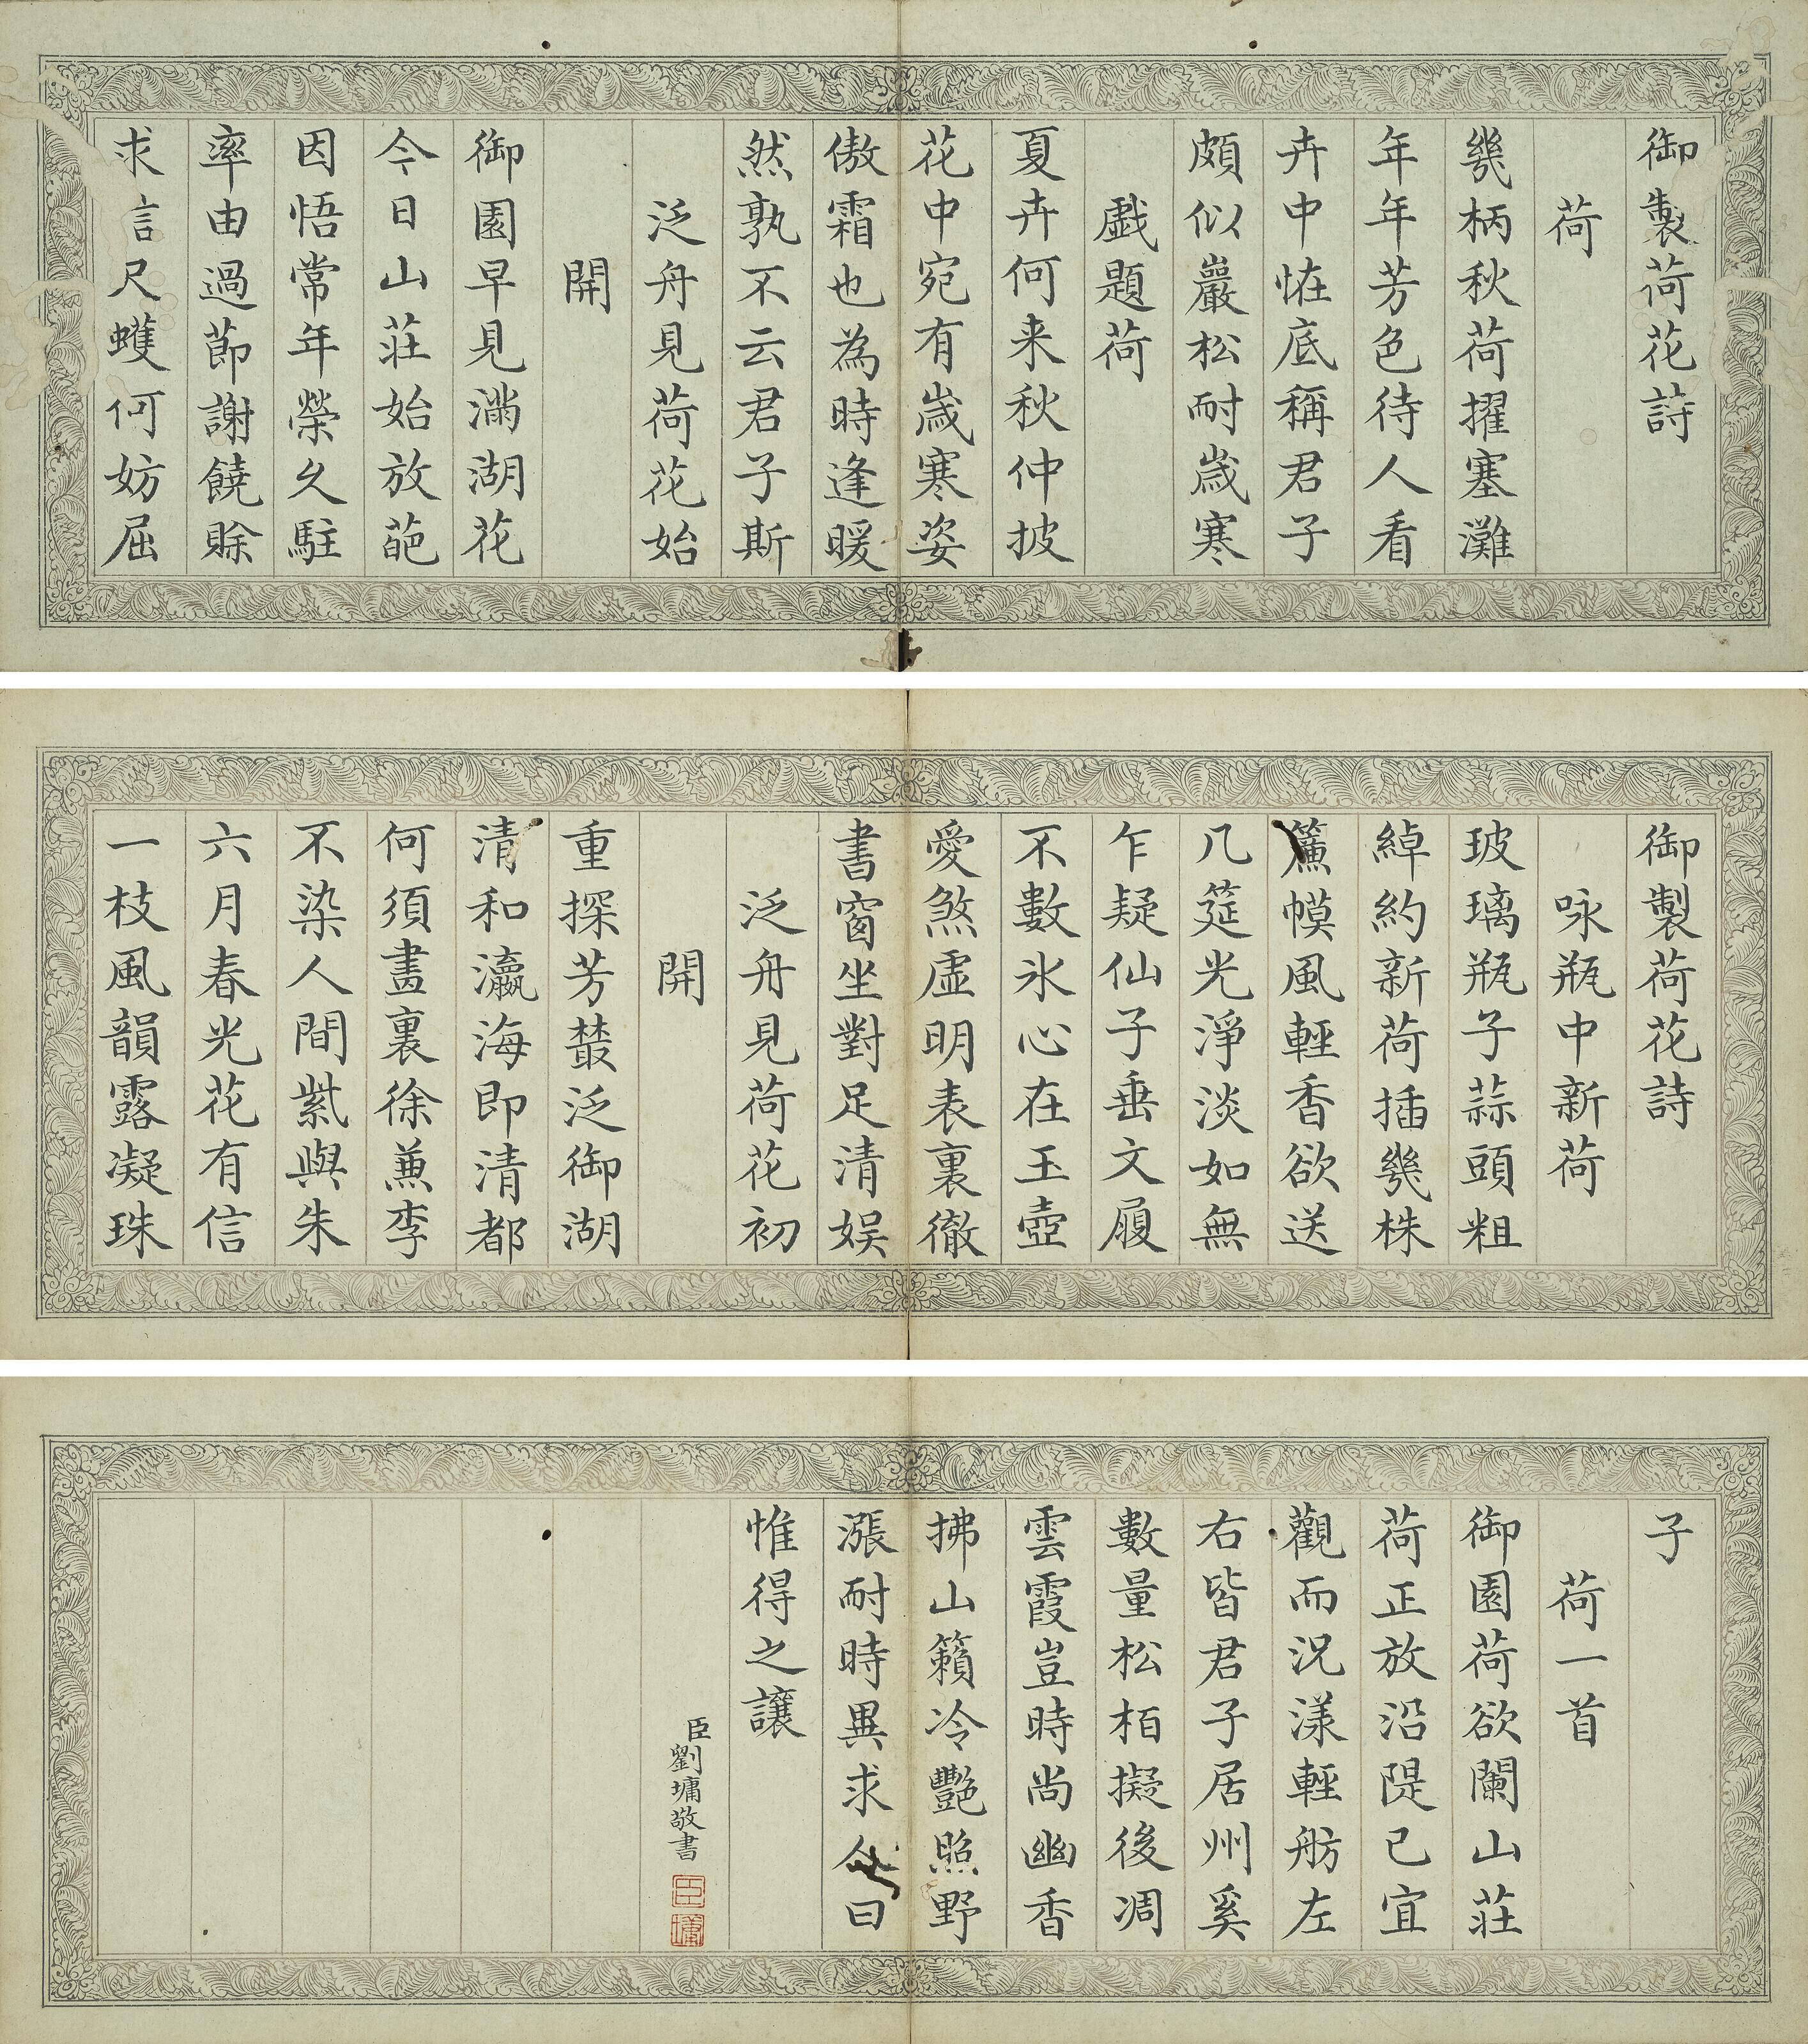 御製荷花詩
荷
幾柄秋荷擢塞灘
年年芳色待人看
卉中恠底稱君子
頗似巖松耐歲寒
戲題荷
夏卉何来秋仲披
花中宛有歲寒姿
傲霜也為時逢暖
然孰不云君子斯
泛舟見荷花始
開
御園早見滿湖花
今日山莊始放葩
因悟常年榮久駐
率由過節謝饒賒
求言尺蠖何妨屈
御製荷花詩
咏瓶中新荷
玻璃瓶子蒜頭粗
綽約新荷插幾株
簾幙風輕香欲送
几筵光淨淡如無
乍疑仙子垂文履
不數氷心在玉壺
愛煞虛明表裏徹
書窗坐對足清娛
泛舟見荷花初
開
重探芳藂泛御湖
清和瀛海即清都
何須畫裏徐蕪李
不染人間紫與朱
六月春光花有信
一枝風韻露凝珠
子
荷一首
御園荷欲闌山莊
荷正放沿隄已宜
觀而況漾輕舫左
右皆君子居州奚
數量松栢擬後凋
雲霞豈時尚幽香
拂山籟冷艷照野
漲耐時異求人曰
惟得之讓
臣劉墉敬書
臣
墉